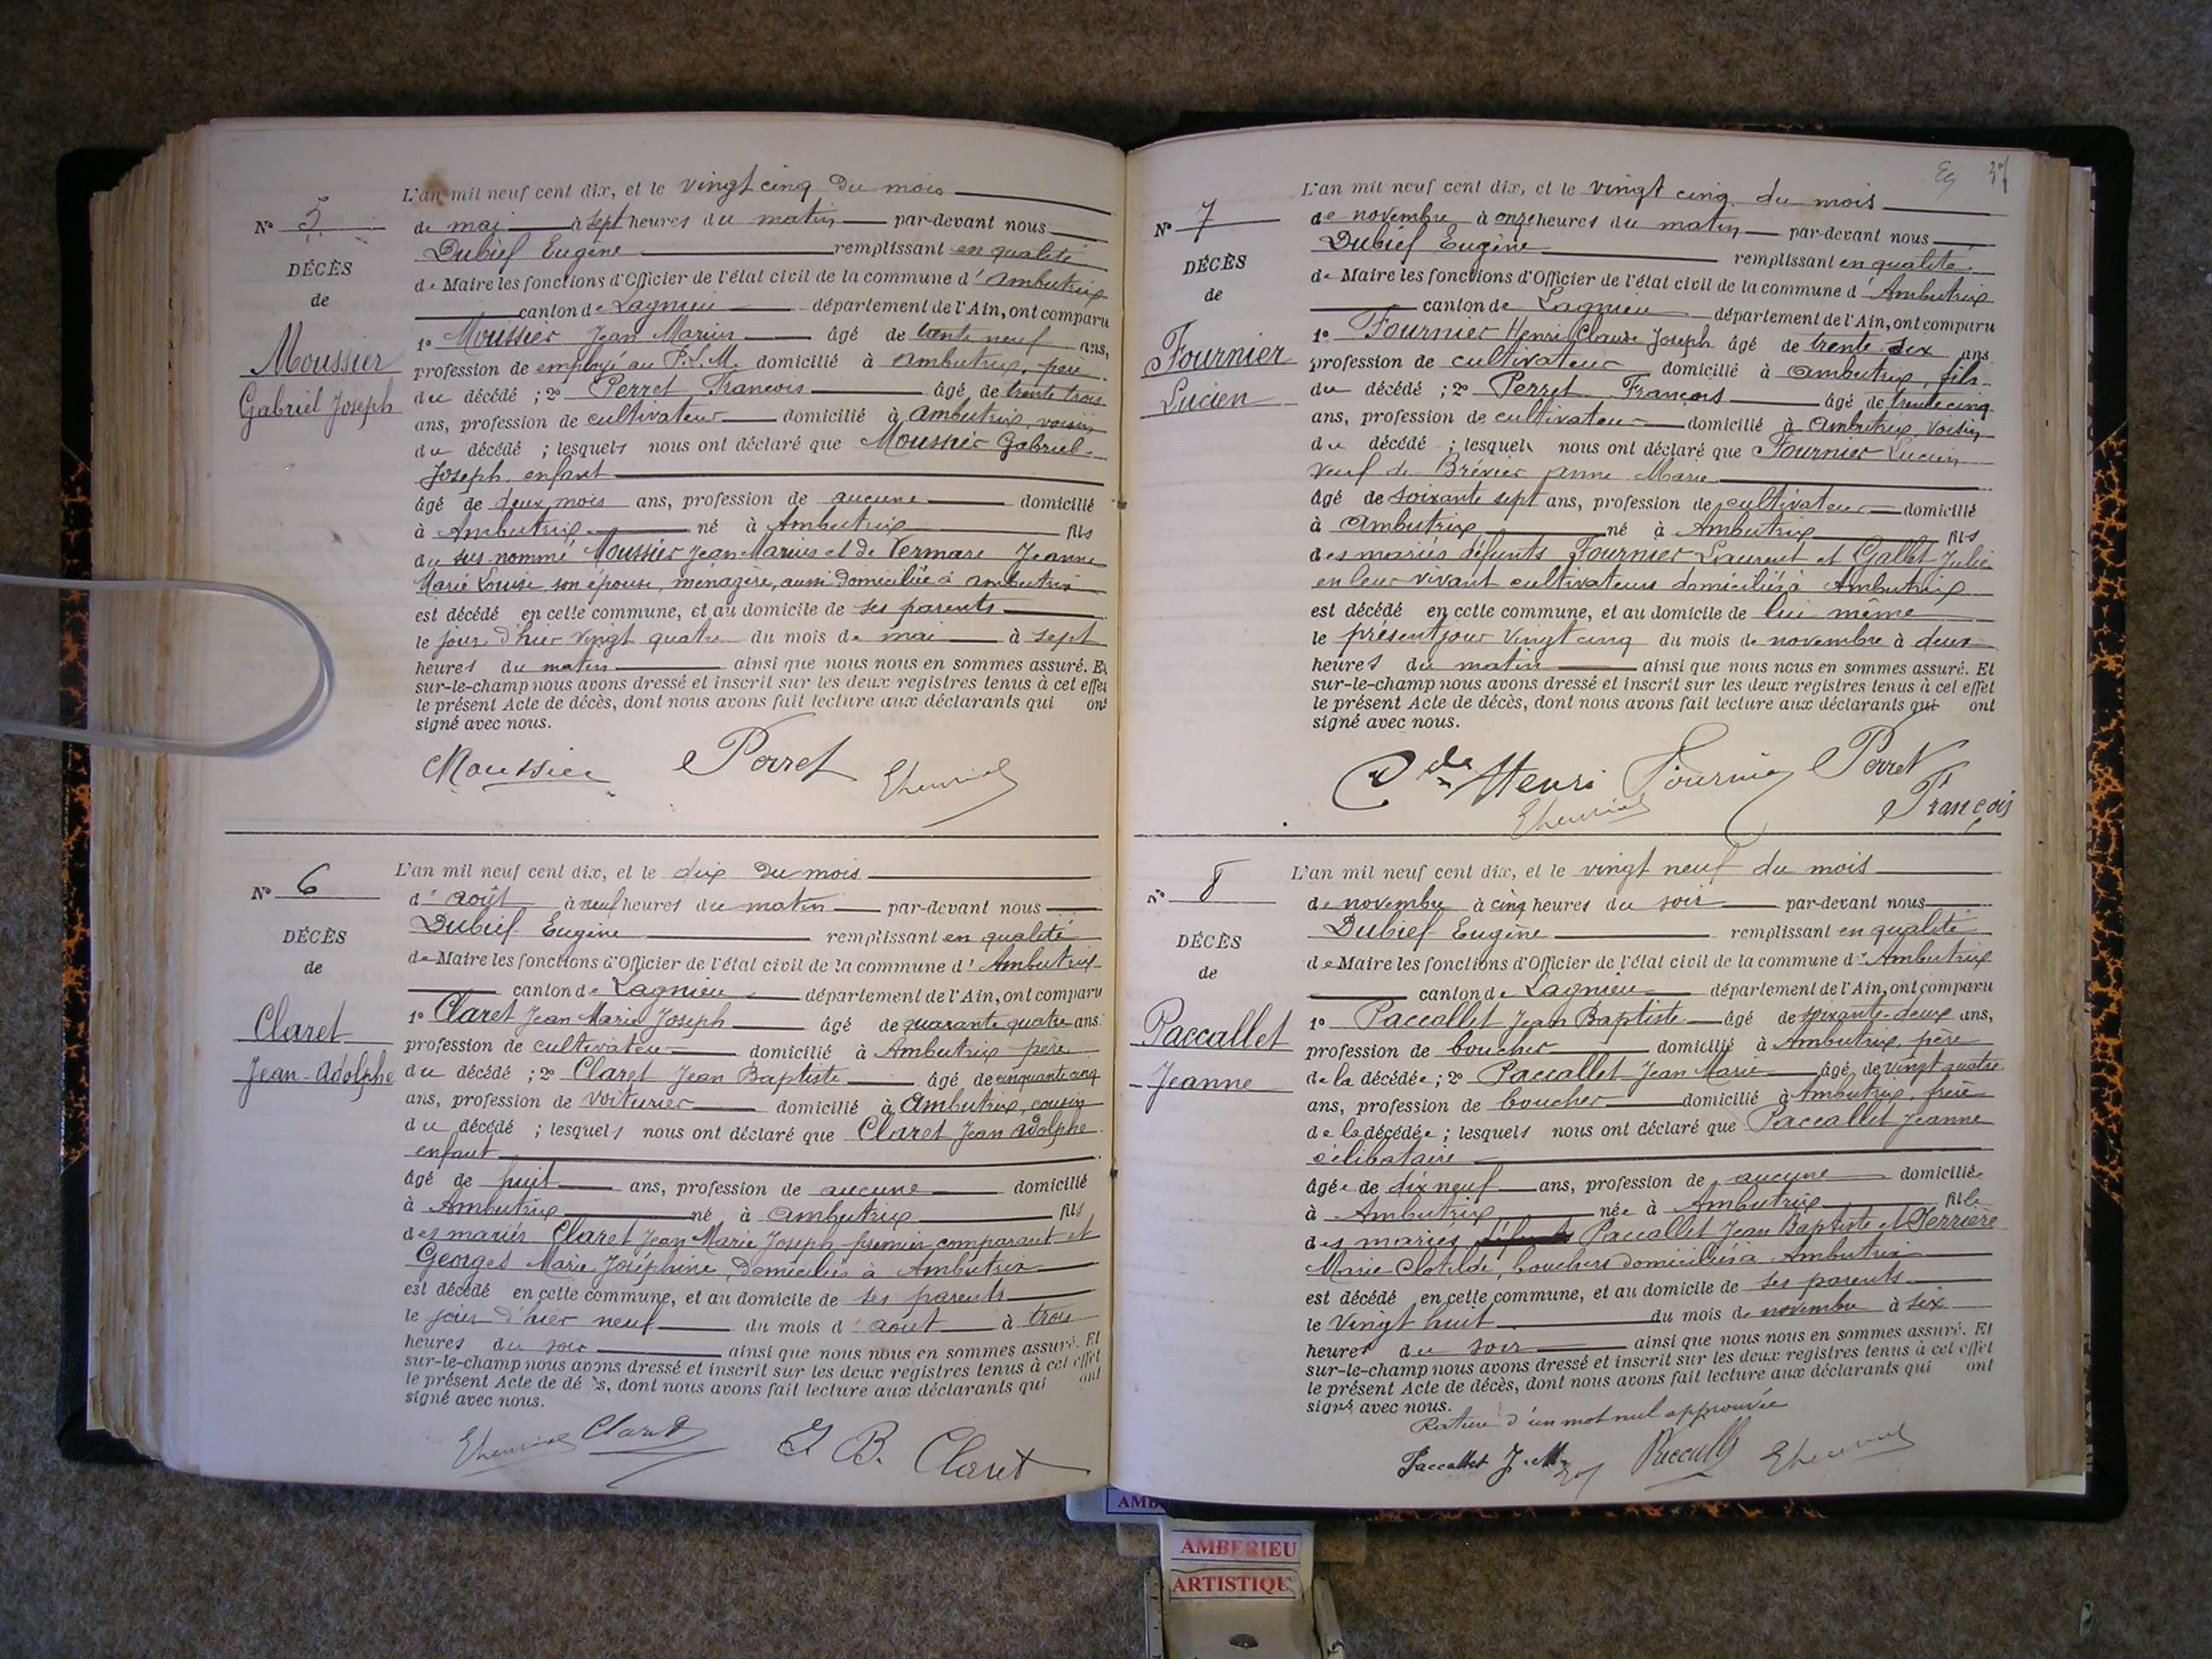 L'an mil neuf cent dix, et le vingt cinq du mois
N° 5
de mai à sept heures du matin par-devant nous
Dubief Eugène remplissant en qualité
DÉCÈS
de Maire les fonctions d'Officier de l'état civil de la commune d'Ambutrix
de
canton de Lagnieu département de l'Ain, ont comparu
1° Moussier Jean Marius âgé de trente neuf ans,
Moussier
profession de employé au P.L.M. domicilié à Ambutrix, père
Gabriel Joseph
du décédé ; 2° Perret François âgé de trente trois
ans, profession de cultivateur domicilié à Ambutrix, voisin
du décédé ; lesquels nous ont déclaré que Moussier Gabriel
Joseph, enfant
âgé de deux mois ans, profession de aucune domicilié
à Ambutrix né à Ambutrix fils
du sus nommé Moussier Jean Marius et de Vermare Jeanne
Marie Louise, son épouse, ménagère, aussi domiciliée à Ambutrix
est décédé en cette commune, et au domicile de ses parents
le jour d'hier vingt quatre du mois de mai à sept
heures du matin ainsi que nous nous en sommes assuré. Et
sur-le-champ nous avons dressé et inscrit sur les deux registres tenus à cet effet
le présent Acte de décès, dont nous avons fait lecture aux déclarants qui ont
signé avec nous.
Moussier Perret
L'an mil neuf cent dix, et le dix du mois
N° 6
d'août à neuf heures du matin par-devant nous
Dubief Eugène remplissant en qualité
DÉCÈS
de Maire les fonctions d'Officier de l'état civil de la commune d'Ambutrix
de
canton de Lagnieu département de l'Ain, ont comparu
Claret
1° Claret Jean Marie Joseph âgé de quarante quatre ans
profession de cultivateur domicilié à Ambutrix père
Jean-Adolphe
du décédé ; 2° Claret Jean Baptiste âgé de cinquante cinq
ans, profession de voiturier domicilié à Ambutrix, cousin
du décédé ; lesquels nous ont déclaré que Claret Jean Adolphe
enfant
âgé de huit ans, profession de aucune domicilié
à Ambutrix né à Ambutrix fils
des mariés Claret Jean Marie Joseph premier comparant et
Georges Marie Joséphine, domiciliés à Ambutrix
est décédé en cette commune, et au domicile de ses parents
le jour d'hier neuf du mois d'août à trois
heures du soir ainsi que nous nous en sommes assuré. Et
sur-le-champ nous avons dressé et inscrit sur les deux registres tenus à cet effet
le présent Acte de dé s, dont nous avons fait lecture aux déclarants qui ont
signé avec nous.
Claret J B. Claret
37
L'an mil neuf cent dix, et le vingt cinq du mois
N° 7
de novembre à onze heures du matin par-devant nous
Dubief Eugène remplissant en qualité
DÉCÈS
de Maire les fonctions d'Officier de l'état civil de la commune d'Ambutrix
de
canton de Lagnieu département de l'Ain, ont comparu
1° Fournier Henri Claude Joseph âgé de trente six ans
Fournier
profession de cultivateur domicilié à Ambutrix, fils
Lucien
du décédé ; 2° Perret François âgé de trente cinq
ans, profession de cultivateur domicilié à Ambutrix, voisin
du décédé ; lesquels nous ont déclaré que Fournier Lucien
veuf de Brévier Anne Marie
âgé de soixante sept ans, profession de cultivateur domicilié
à Ambutrix né à Ambutrix fils
des mariés défunts Fournier Laurent et Gallet Julie
en leur vivant cultivateurs domiciliés à Ambutrix
est décédé en cette commune, et au domicile de lui même
le présent jour vingt cinq du mois de novembre à deux
heures du matin ainsi que nous nous en sommes assuré. Et
sur-le-champ nous avons dressé et inscrit sur les deux registres tenus à cet effet
le présent Acte de décès, dont nous avons fait lecture aux déclarants qui ont
signé avec nous.
Henri Fournier Perret
François
L'an mil neuf cent dix, et le vingt neuf du mois
N° 8
de novembre à cinq heures du soir par-devant nous
Dubief Eugène remplissant en qualité
DÉCÈS
de Maire les fonctions d'Officier de l'état civil de la commune d'Ambutrix
de
canton de Lagnieu département de l'Ain, ont comparu
Paccallet
1° Paccallet Jean Baptiste âgé de soixante-deux ans,
profession de boucher domicilié à Ambutrix, père
Jeanne
de la décédée ; 2° Paccallet Jean Marie âgé de vingt quatre
ans, profession de boucher domicilié à Ambutrix, frère
de la décédée ; lesquels nous ont déclaré que Paccallet Jeanne
célibataire
âgée de dix neuf ans, profession de aucune domiciliée
à Ambutrix née à Ambutrix fille
des mariés Paccallet Jean Baptiste et Perrière
Marie Clotilde, bouchers domiciliés à Ambutrix
est décédé en cette commune, et au domicile de ses parents
le vingt huit du mois de novembre à six
heures du soir ainsi que nous nous en sommes assuré. Et
sur-le-champ nous avons dressé et inscrit sur les deux registres tenus à cet effet
le présent Acte de décès, dont nous avons fait lecture aux déclarants qui ont
signé avec nous.
Rature d'un mot nul approuvée
Paccallet J.M.
AMBERIEU
ARTISTIQU